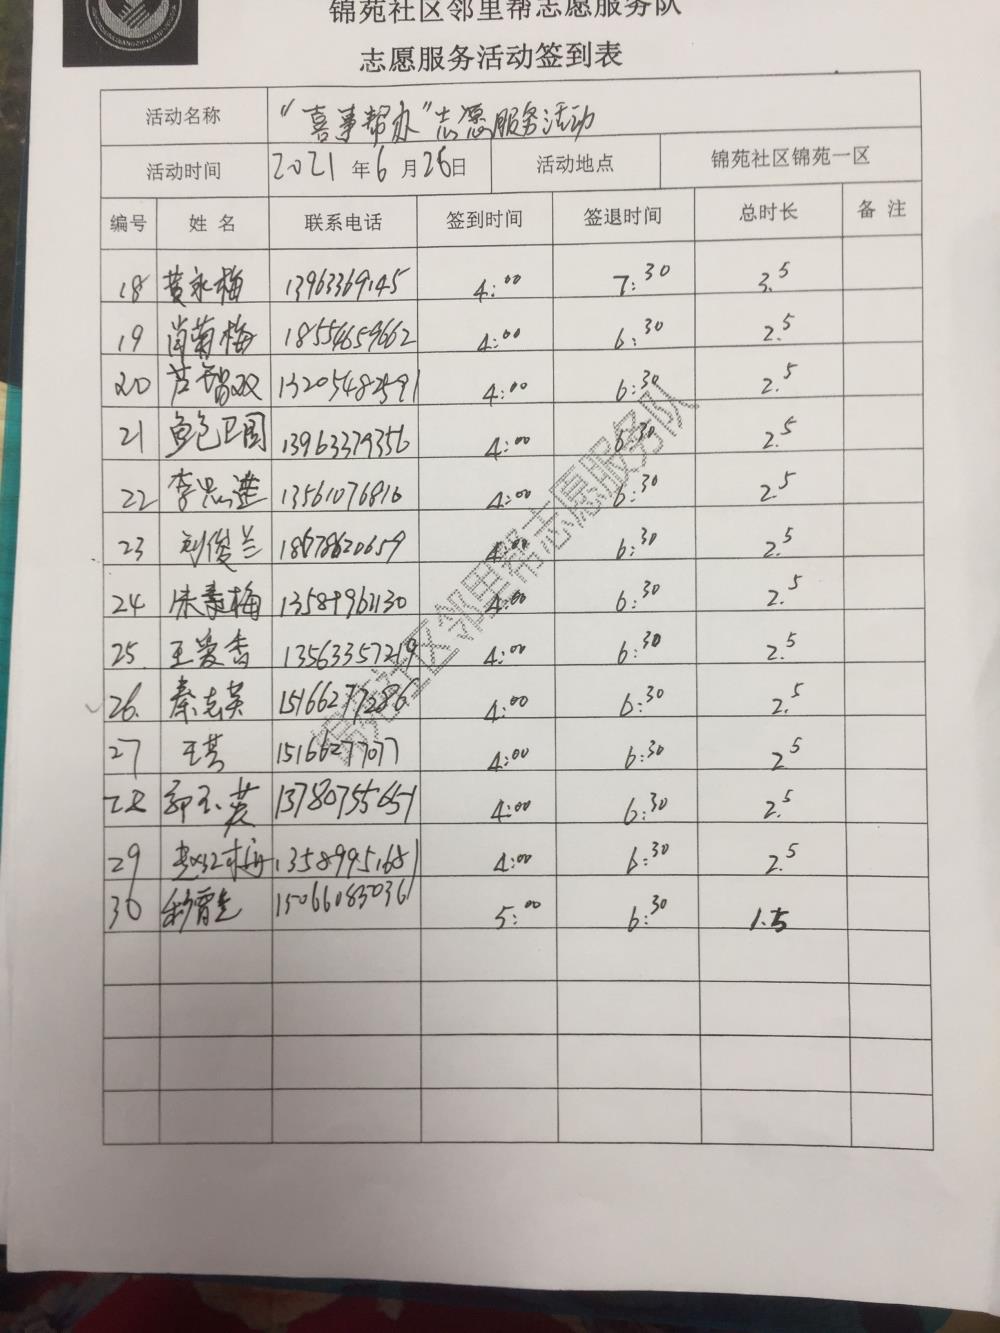 锦苑社区邻里帮志愿服务队
志愿服务活动签到表
活动名称 “喜事帮办”志愿服务活动
活动时间 2021年6月26日 活动地点 锦苑社区锦苑一区
编号 姓名 联系电话 签到时间 签退时间 总时长 备注
18 黄永梅 13963369145 4:00 7:30 3.5
19 肖菊梅 18554659662 4:00 6:30 2.5
20 芦智双 13205482591 4:00 6:30 2.5
21 鲍卫国 13963379356 4:00 6:30 2.5
22 李思莲 13561076816 4:00 6:30 2.5
23 刘俊兰 18678620659 4:00 6:30 2.5
24 朱春梅 13589961130 4:00 6:30 2.5
25. 王爱香 13563357219 4:00 6:30 2.5
26. 秦克英 15166277286 4:00 6:30 2.5
27 王芸 15166277077 4:00 6:30 2.5
28 郭玉爱 13780755651 4:00 6:30 2.5
29 梅 13589951681 4:00 6:30 2.5
30 15066083036 5:00 6:30 1.5
锦苑社区邻里帮志愿服务队